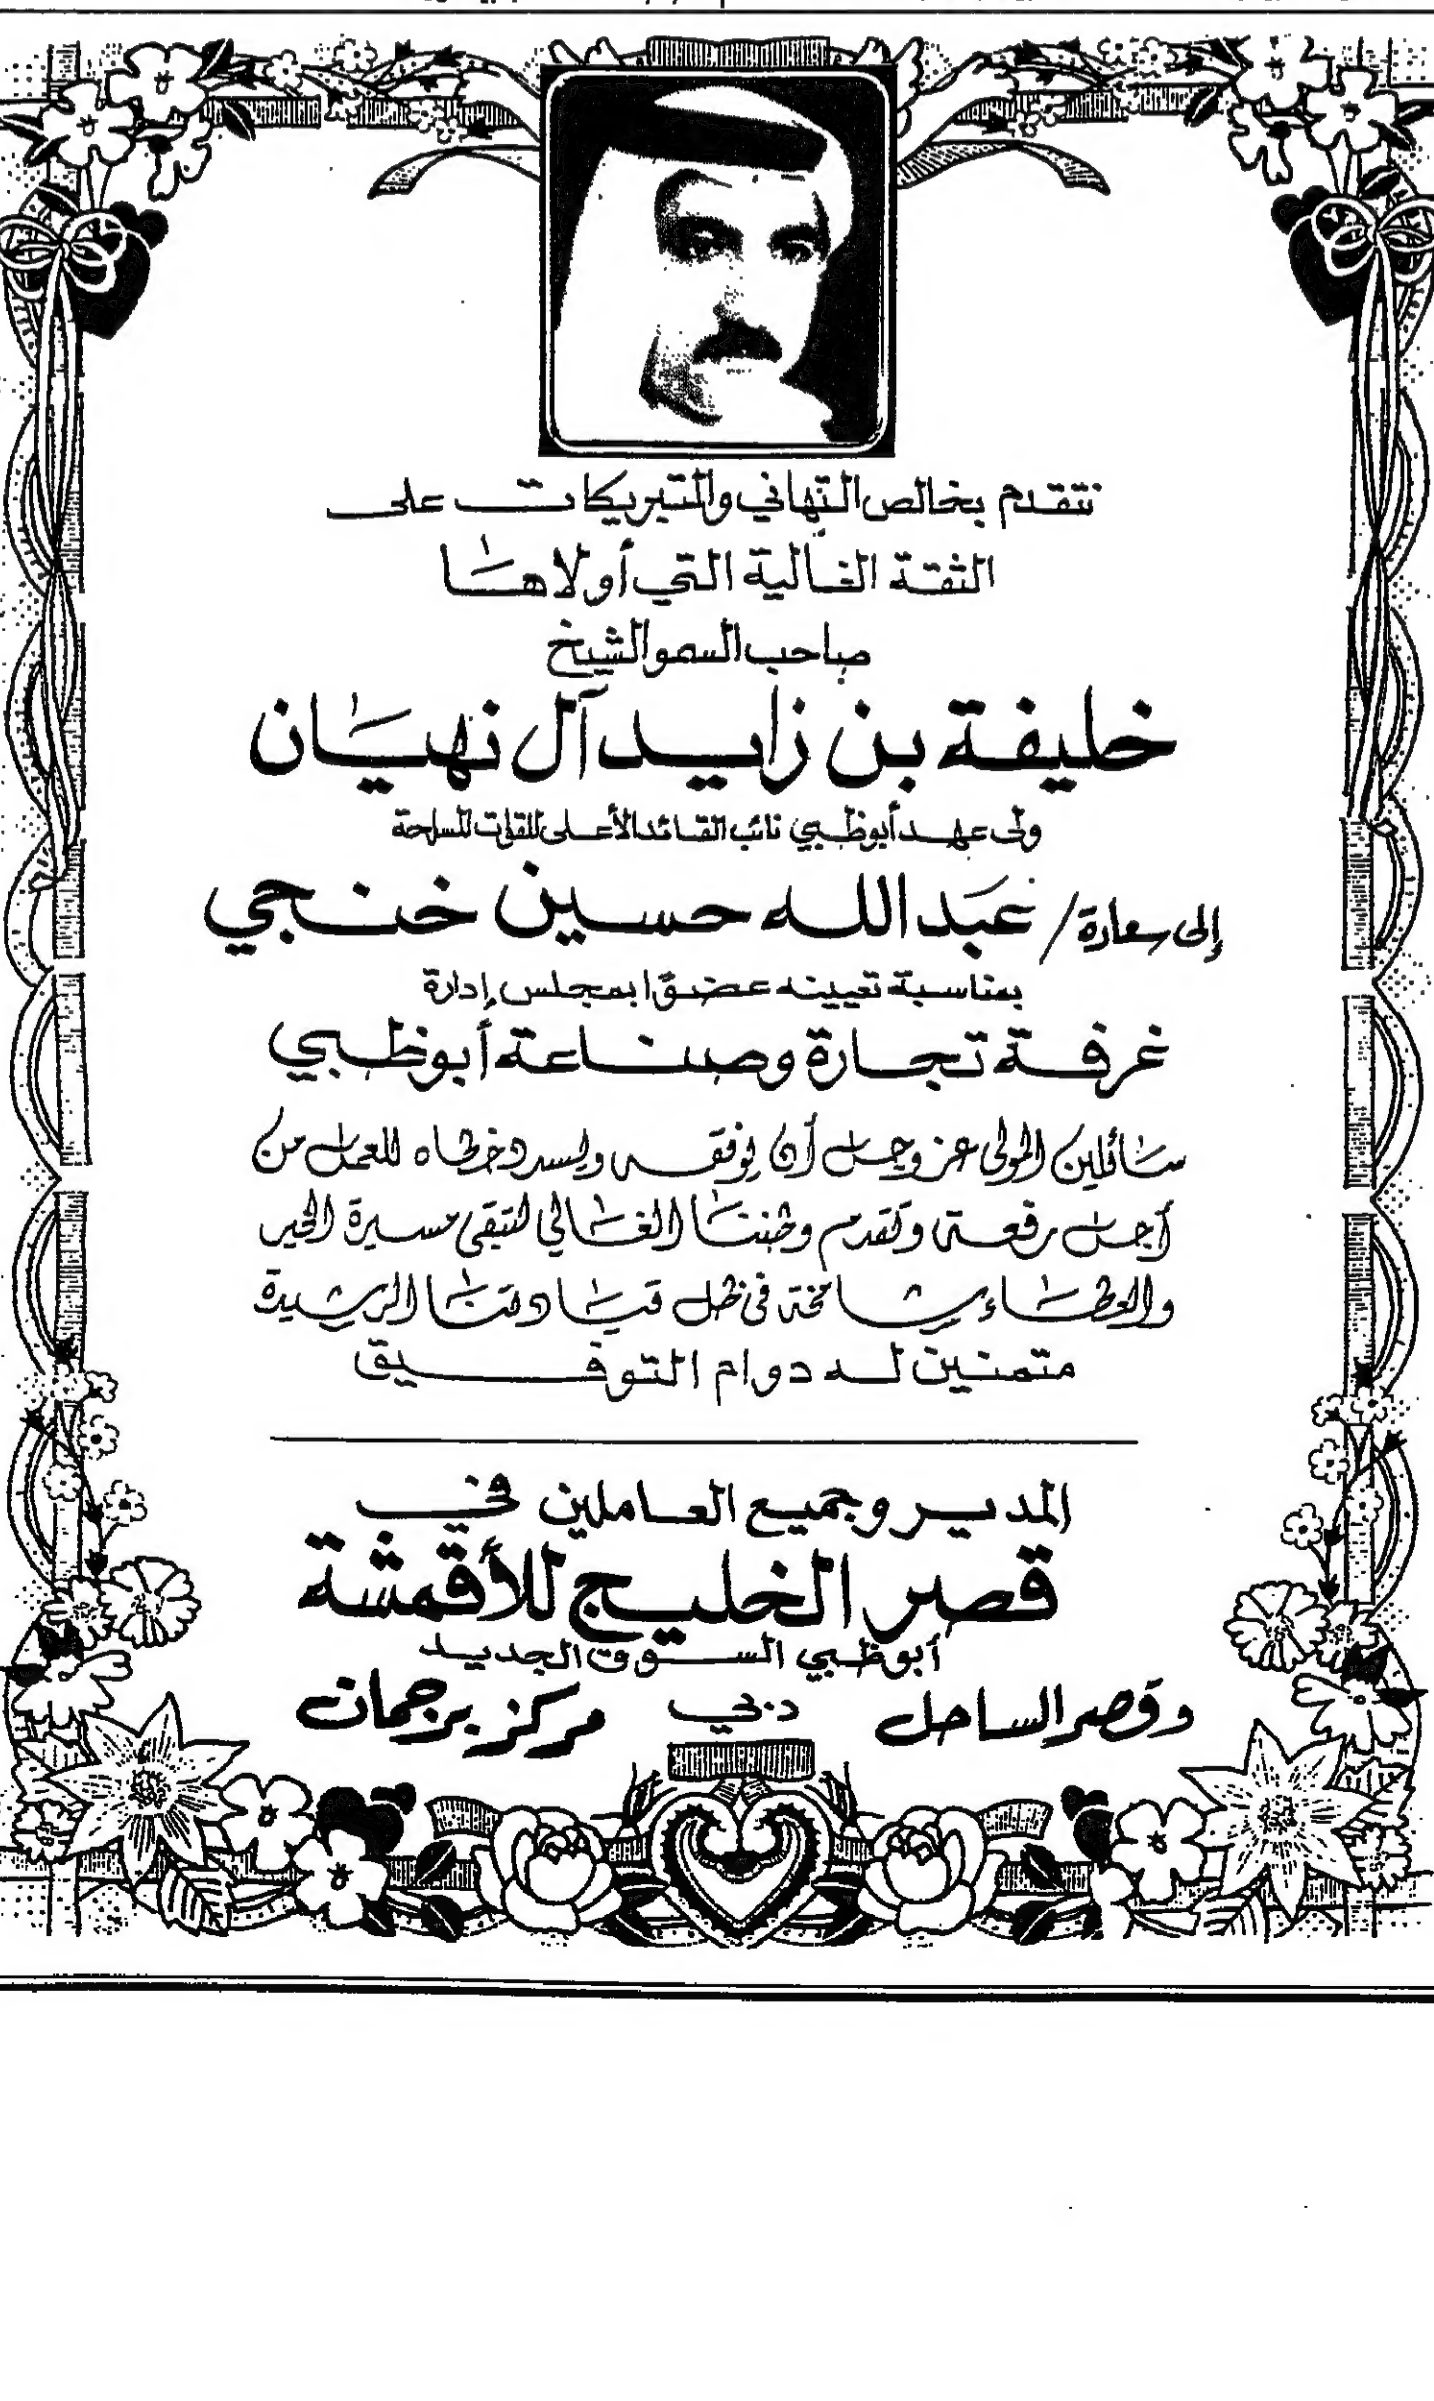 نتقدم بخالص التهاني والتبريكات على
الثقة الغالية التي أولاها
صاحب السمو الشيخ
خليفة بن زايد آل نهيان
ولى عهد أبوظبي نائب القائد الأعلى للقوات المسلحة
إلى سعادة / عبد الله حسين خنجي
بمناسبة تعيينه عضوًا بمجلس إدارة
غرفة تجارة وصناعة أبوظبي
سائلين المولى عز وجل أن يوفقه ويسدد خطاه للعمل من
أجل رفعة وتقدم وطننا الغالي لتبقى مسيرة الخير
والعطاء شامخة في ظل قيادتنا الرشيدة
متمنين له دوام التوفيق
المدير وجميع العاملين في
قصر الخليج للأقمشة
أبوظبي السوق الجديد
وقصر الساحل دبي مركز برجمان